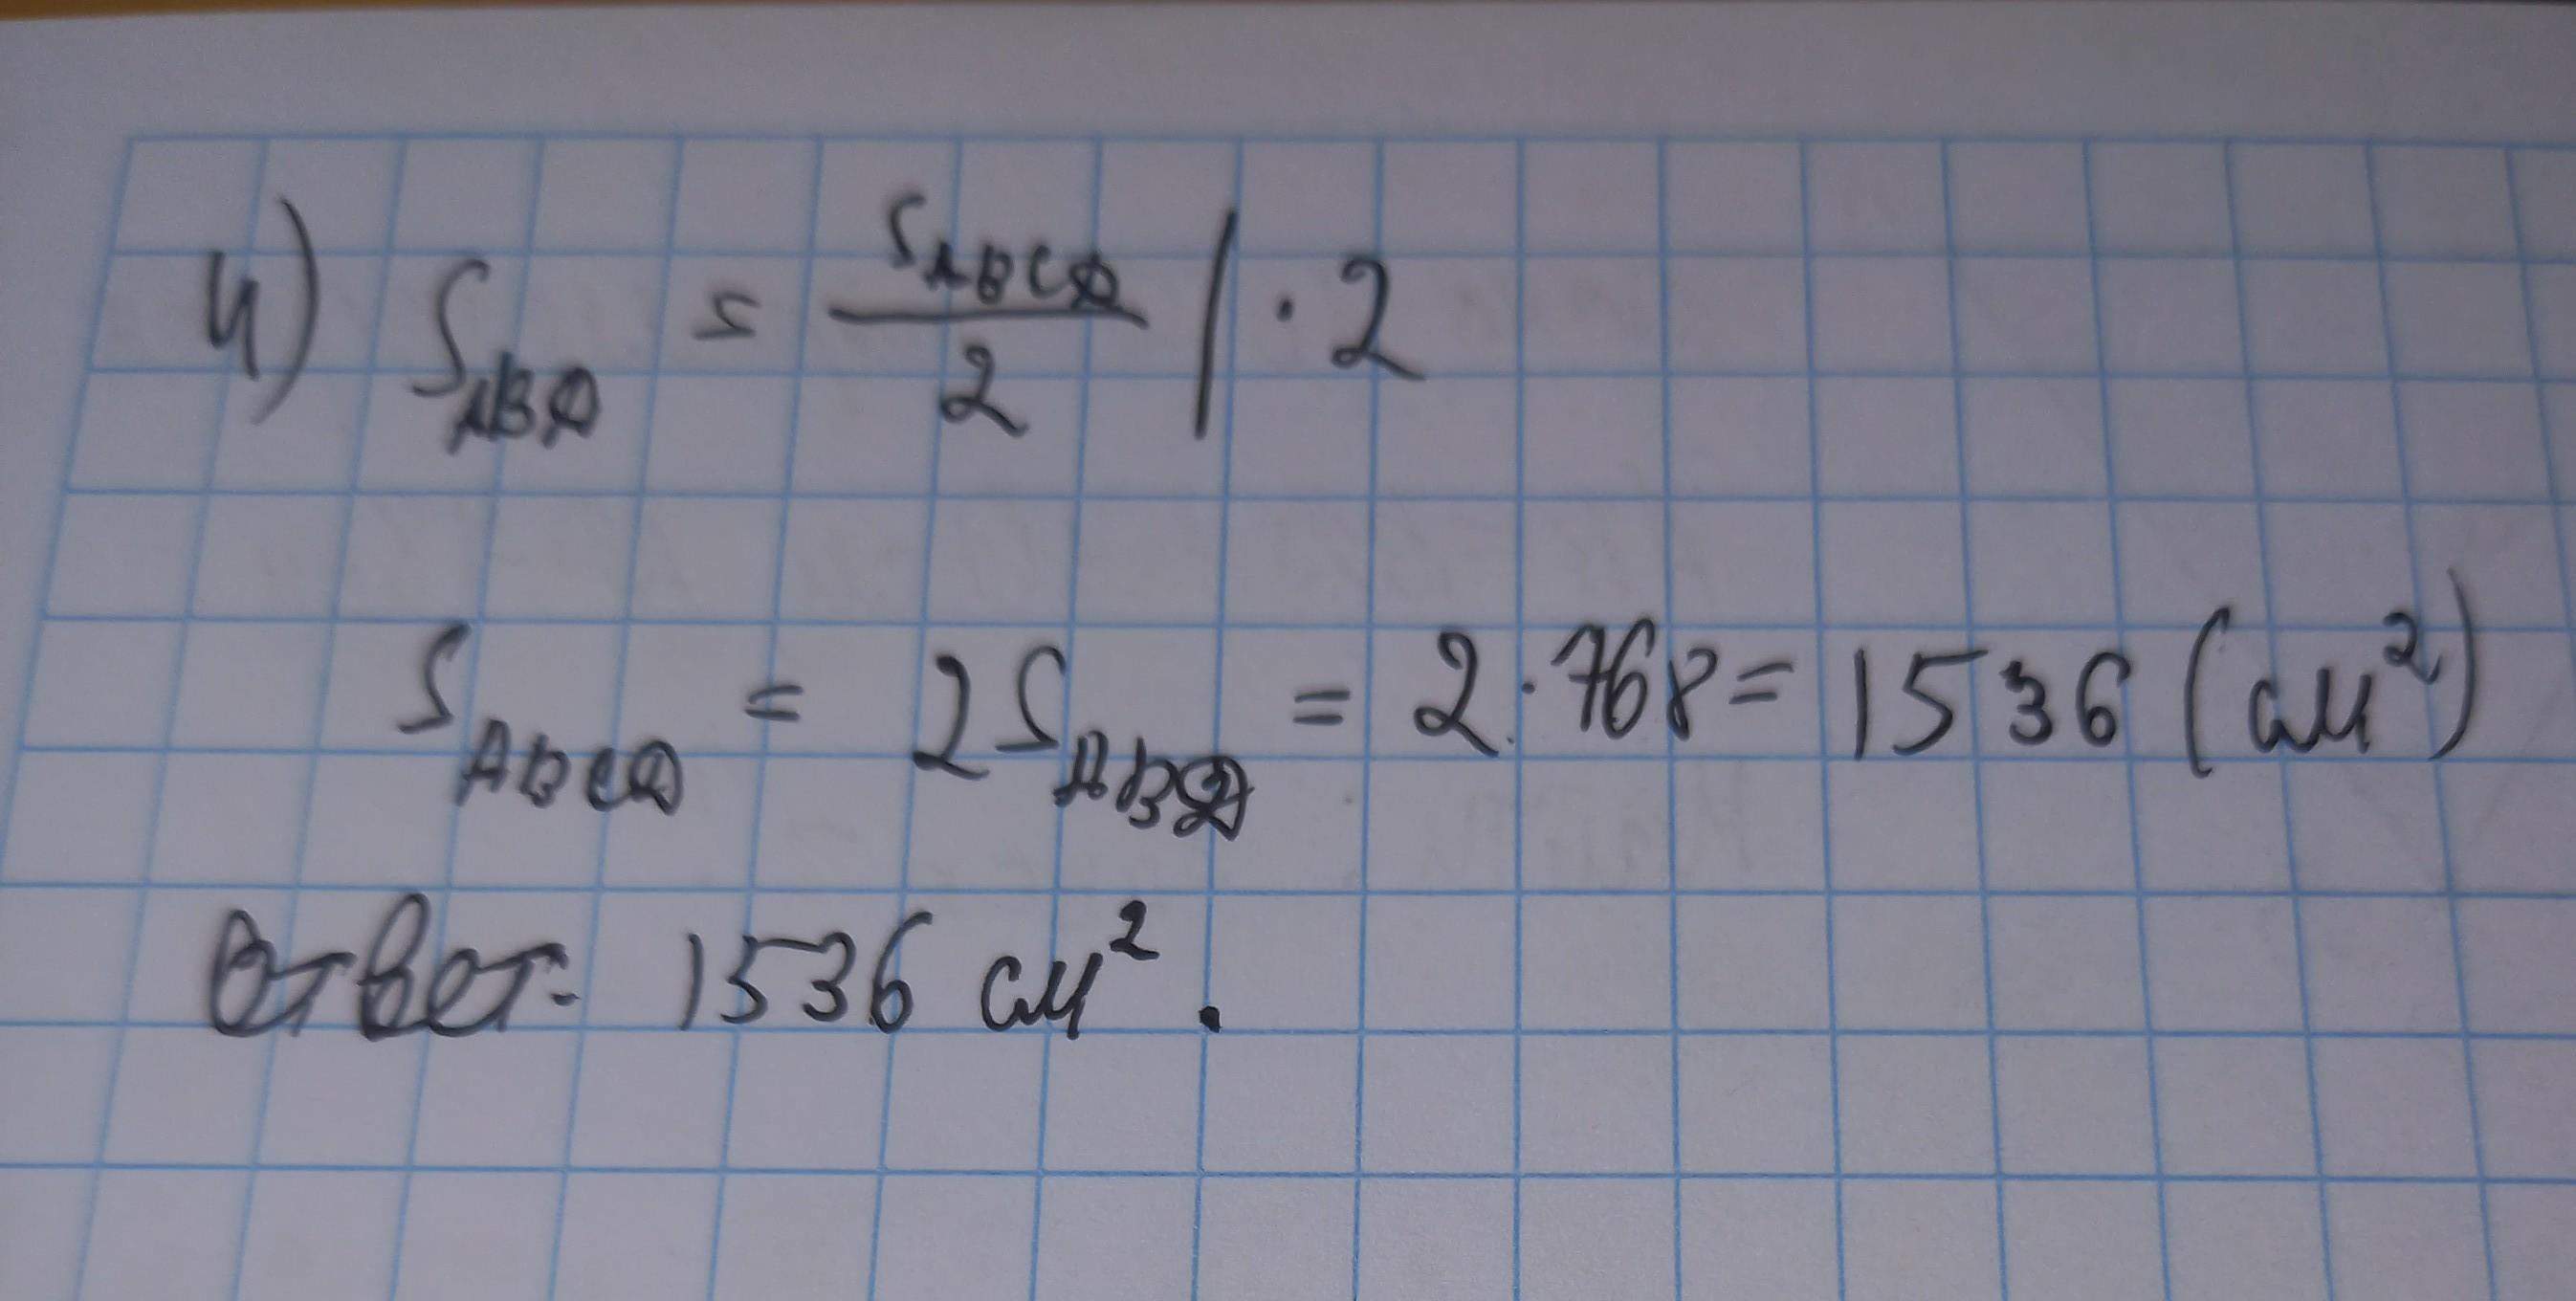 4) S_ABD = S_ABCD / 2 | · 2
S_ABCD = 2S_ABD = 2 · 768 = 1536 (см²)
Ответ: 1536 см².